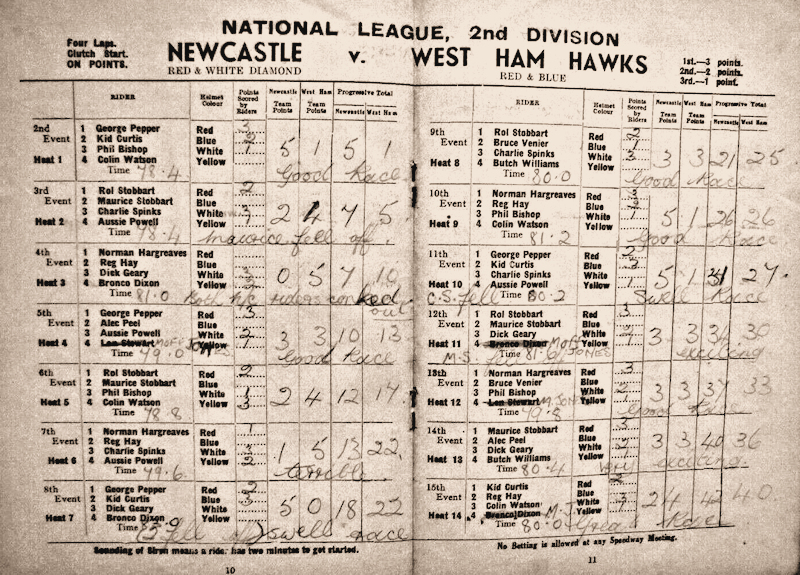 NATIONAL LEAGUE, 2nd DIVISION
Four Laps.
Clutch Start.
ON POINTS.
NEWCASTLE v. WEST HAM HAWKS
RED & WHITE DIAMOND
RED & BLUE
1st.—3 points.
2nd.—2 points.
3rd.—1 point.
RIDER Helmet Colour Points Scored by Riders Newcastle Team Points West Ham Team Points Progressive Total Newcastle West Ham
2nd Event 1 George Pepper Red 3
2 Kid Curtis Blue 2
3 Phil Bishop White 1 5 1 5 1
Heat 1 4 Colin Watson Yellow
Time 78.4 Good Race
3rd Event 1 Rol Stobbart Red 2
2 Maurice Stobbart Blue
3 Charlie Spinks White 2 4 7 5
Heat 2 4 Aussie Powell Yellow
Time 78.4 Maurice fell off.
4th Event 1 Norman Hargreaves Red
2 Reg Hay Blue
3 Dick Geary White 0 5 7 10
Heat 3 4 Bronco Dixon Yellow
Time 81.0 Both N/C riders conked out
5th Event 1 George Pepper Red 3
2 Alec Peel Blue
3 Aussie Powell White 3 3 10 13
Heat 4 4 Len Stewart Yellow
Time 79.0 Good Race
6th Event 1 Rol Stobbart Red 2
2 Maurice Stobbart Blue
3 Phil Bishop White 2 4 12 17
Heat 5 4 Colin Watson Yellow 3
Time 78.8
7th Event 1 Norman Hargreaves Red
2 Reg Hay Blue
3 Charlie Spinks White 1 5 13 22
Heat 6 4 Aussie Powell Yellow 2
Time 79.6 terrible.
8th Event 1 George Pepper Red 2
2 Kid Curtis Blue
3 Dick Geary White 5 0 18 22
Heat 7 4 Bronco Dixon Yellow
Time swell race
Sounding of Siren means a rider has two minutes to get started.
10
RIDER Helmet Colour Points Scored by Riders Newcastle Team Points West Ham Team Points Progressive Total Newcastle West Ham
9th Event 1 Rol Stobbart Red 2
2 Bruce Venier Blue 1
3 Charlie Spinks White 3 3 3 21 25
Heat 8 4 Butch Williams Yellow
Time 80.0 Good Race
10th Event 1 Norman Hargreaves Red
2 Reg Hay Blue 3
3 Phil Bishop White 1 5 1 26 26
Heat 9 4 Colin Watson Yellow
Time 81.2 Good Race
11th Event 1 George Pepper Red
2 Kid Curtis Blue
3 Charlie Spinks White 5 1 31 27
Heat 10 4 Aussie Powell Yellow
C.S. fell Time 80.2 Swell Race
12th Event 1 Rol Stobbart Red 3
2 Maurice Stobbart Blue
3 Dick Geary White 3 3 34 30
Heat 11 4 Bronco Dixon Yellow
M.S. Time 81.6 JONES exciting
13th Event 1 Norman Hargreaves Red 3
2 Bruce Venier Blue
3 Phil Bishop White 3 3 37 33
Heat 12 4 Len Stewart M. JONES Yellow
Time 79.8 Good Race
14th Event 1 Maurice Stobbart Red 3
2 Alec Peel Blue
3 Dick Geary White 3 3 40 36
Heat 13 4 Butch Williams Yellow
Time 80.4 very exciting.
15th Event 1 Kid Curtis Red
2 Reg Hay Blue
3 Colin Watson White 2 4 42 40
Heat 14 4 Bronco Dixon M.J. Yellow
Time 80.0 Great Race
No Betting is allowed at any Speedway Meeting.
11